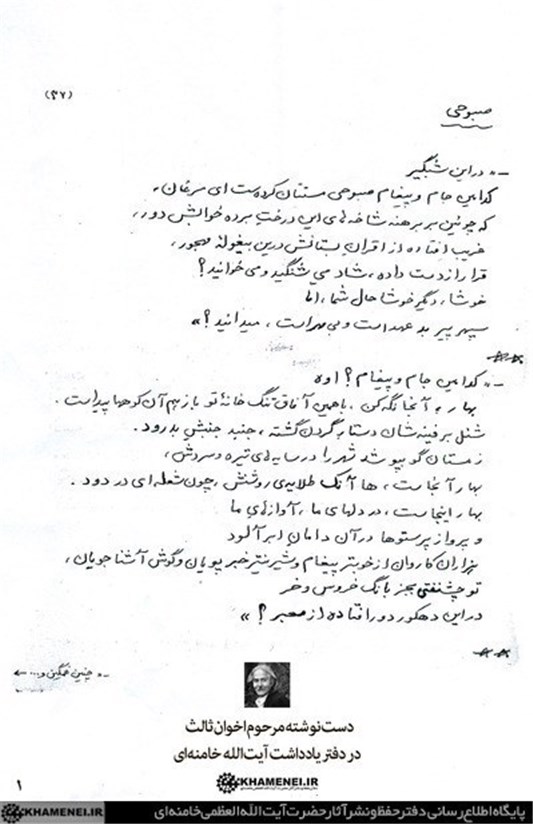 (۳۷)
صبوحی
ــ « در این شبگیر
کدامین جام و پیغام صبوحی مستتان کرده‌ست ای مرغان،
که چونین بر برهنه شاخه‌های این درختِ برده خوابش دور،
غریب افتاده از اقرانِ بستانش درین بیغولهٔ مهجور،
قرار از دست داده، شاد می‌شنگید و می‌خوانید؟
خوشا، دگر خوشا حال شما، اما
سپهر پیر بد عهد است و بی‌مهر است، میدانید؟ »
ــ « کدامین جام و پیغام؟ اوه
بهار، آنجا نگه کن، با همین آفاق تنگ خانهٔ تو باز هم آن کوهها پیداست.
شنل برفینه‌شان دستارِ گردن گشته، جنبد جنبشِ بدرود.
زمستان گو بپوشد شهر را در سایه‌های تیره و سردش،
بهار آنجاست، ها آنک طلایه‌ی روشنش، چون شعله‌ای در دود.
بهار اینجاست، در دلهای ما، آوازهای ما
و پرواز پرستوها در آن دامانِ ابرآلود
هزاران کاروان از خوبتر پیغام و شیرینتر خبر پویان و گوش آشنا جویان،
تو چشنفتی بجز بانگ خروس و خر
در این دهکور دور افتاده از معبر؟ »
ــ « چنین غمگین و... ←
دست‌نوشته مرحوم اخوان ثالث
در دفتر یادداشت آیت‌الله خامنه‌ای
KHAMENEI.IR
۱
پایگاه اطلاع‌رسانی دفتر حفظ و نشر آثار حضرت آیت‌الله‌العظمی خامنه‌ای
KHAMENEI.IR